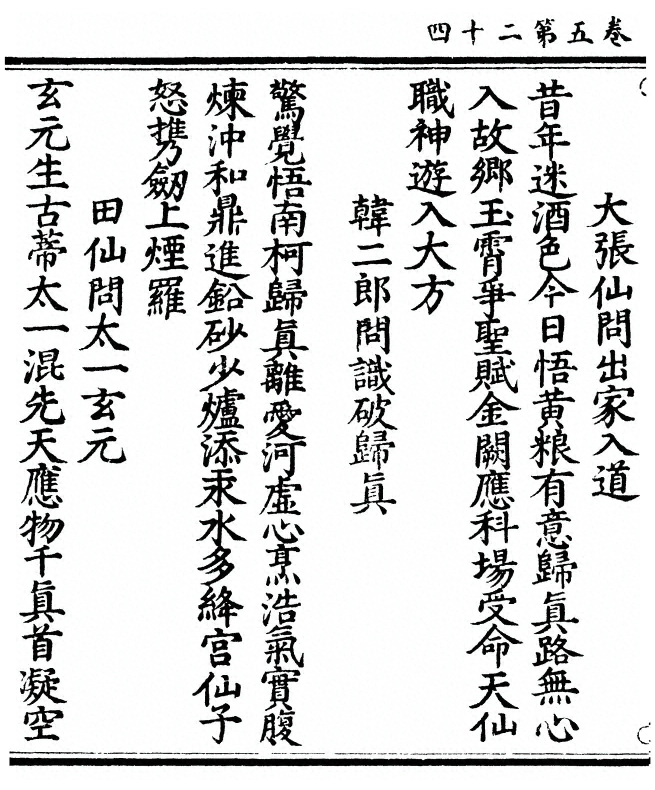 卷五第二十四
大張仙問出家入道
昔年迷酒色今日悟黄粮有意歸真路無心
入故鄉玉霄爭聖賦金闕應科場受命天仙
職神遊入大方
韓二郎問識破歸真
驚覺悟南柯歸真離愛河虛心烹浩氣實腹
煉沖和鼎進鉛砂少爐添汞水多絳宫仙子
怒携劒上煙羅
田仙問太一玄元
玄元生古蒂太一混先天應物千真首凝空